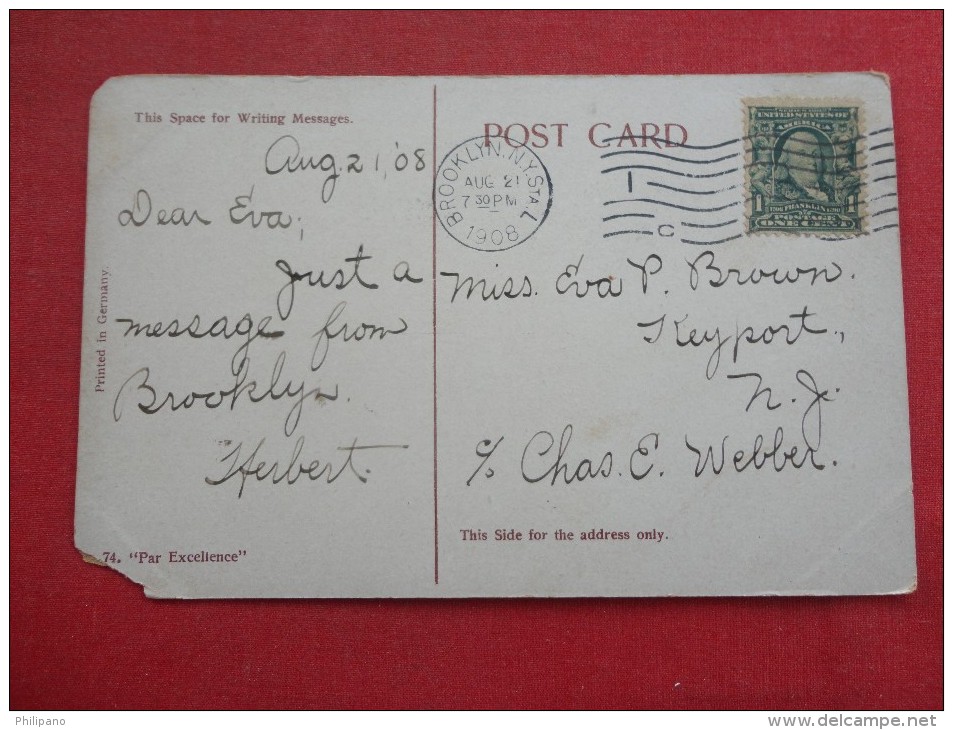 This Space for Writing Messages.
Aug. 21, '08
Dear Eva;
Just a
message from
Brooklyn.
Herbert.
Printed in Germany.
74. "Par Excellence"
POST CARD
BROOKLYN. N.Y. STA. L
AUG 21
7 30 PM
1908
C
UNITED STATES OF
AMERICA
1 FRANKLIN 1
POSTAGE
ONE CENT
Miss. Eva P. Brown.
Keyport,
N. J.
c/o Chas. E. Webber.
This Side for the address only.
Philipano
www.delcampe.net